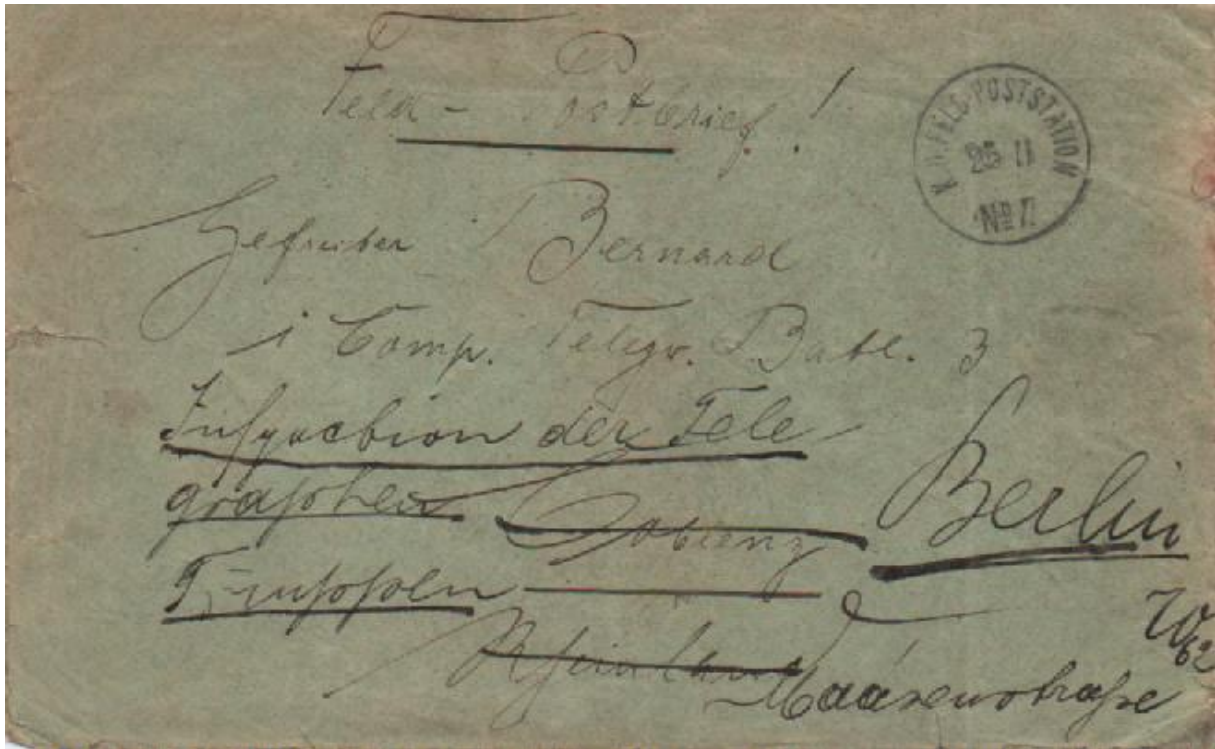 Feld-Postbrief!
K.D. FELD-POSTSTATION
25 11
No
Gefreiter Bernard
1 Comp. Telegr. Batl. 3
Inspection der Tele
graphen Coblenz Berlin
Truppen
W62
Rheinland Maassenstraße